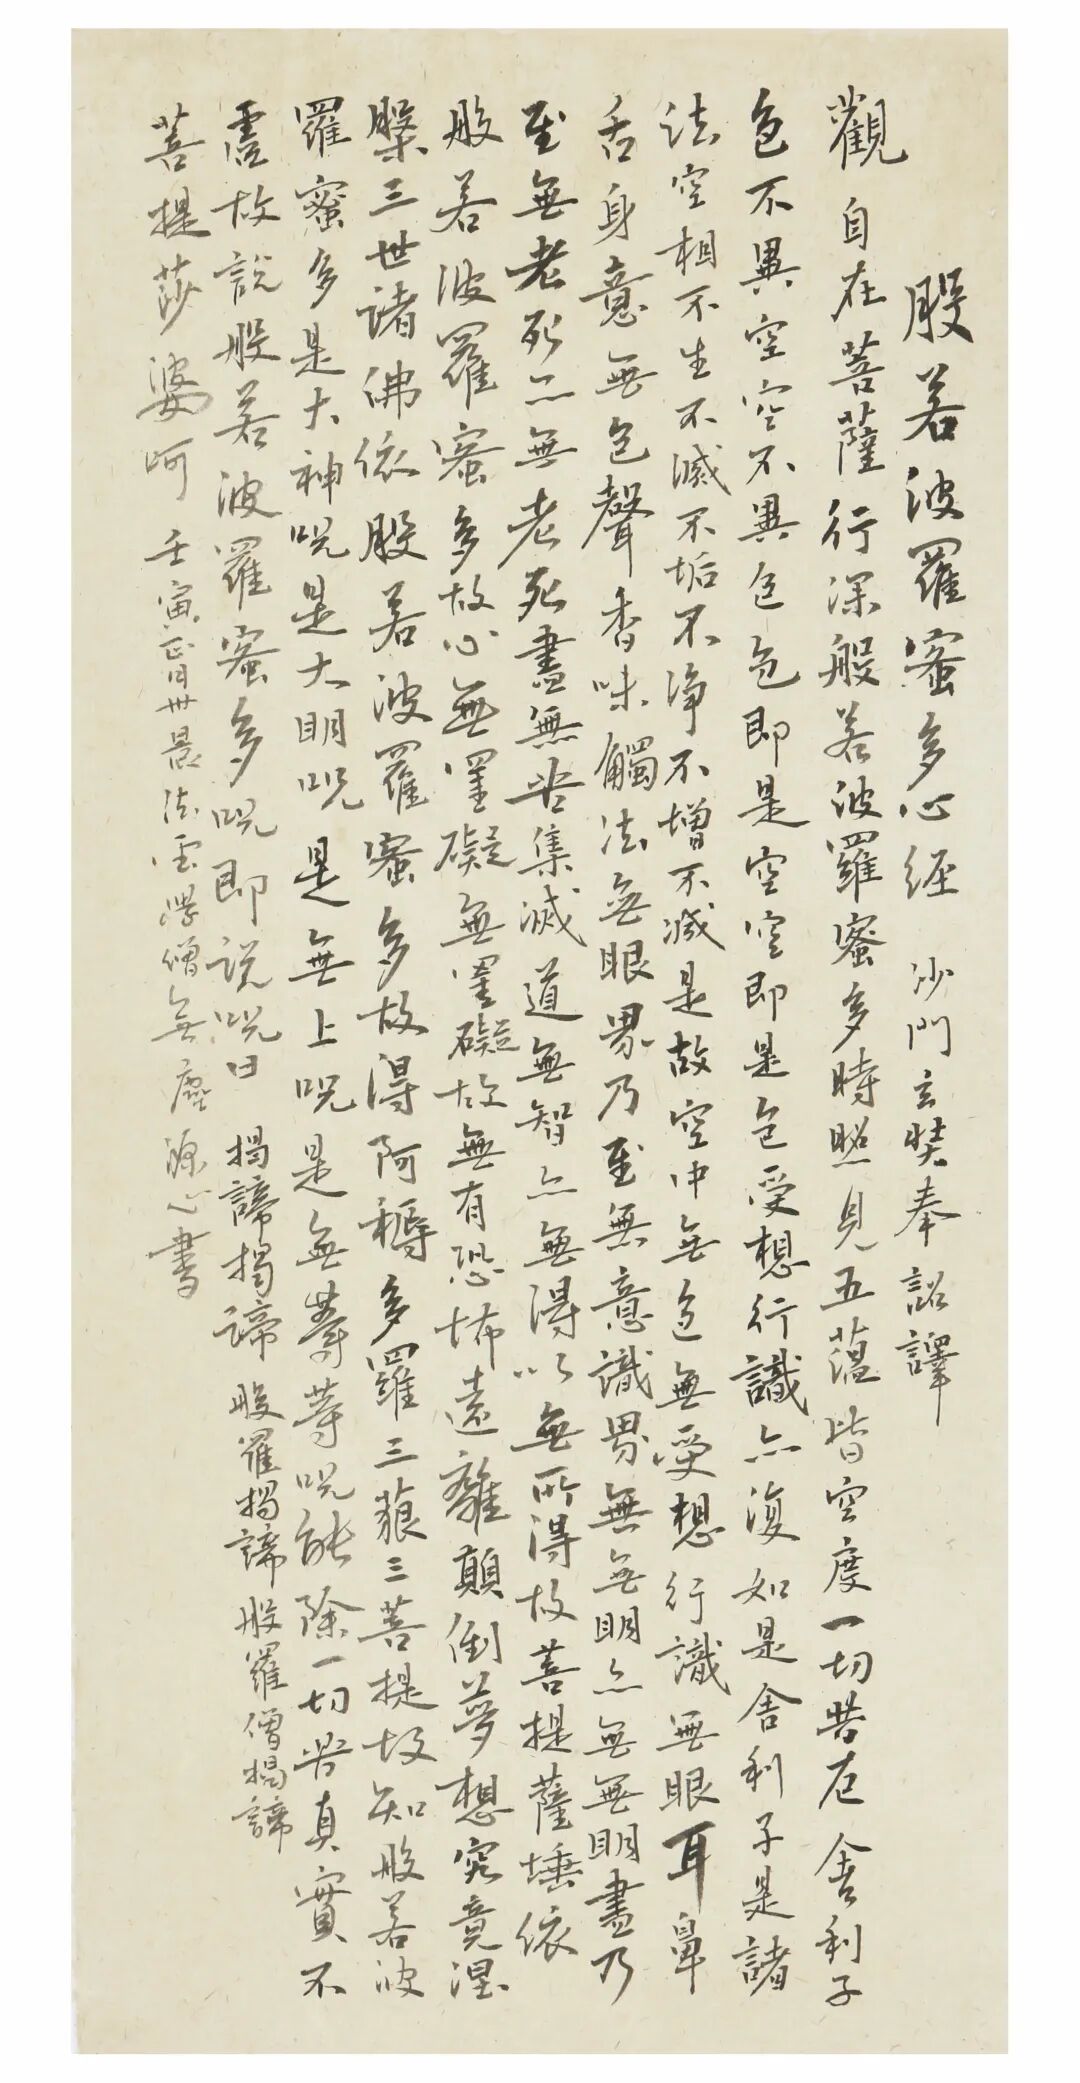 般若波羅蜜多心經 沙門玄奘奉詔譯
觀自在菩薩行深般若波羅蜜多時照見五蘊皆空度一切苦厄舍利子
色不異空空不異色色即是空空即是色受想行識亦復如是舍利子是諸
法空相不生不滅不垢不淨不增不減是故空中無色無受想行識無眼耳鼻
舌身意無色聲香味觸法無眼界乃至無意識界無無明亦無無明盡乃
至無老死亦無老死盡無苦集滅道無智亦無得以無所得故菩提薩埵依
般若波羅蜜多故心無罣礙無罣礙故無有恐怖遠離顛倒夢想究竟涅
槃三世諸佛依般若波羅蜜多故得阿耨多羅三藐三菩提故知般若波
羅蜜多是大神咒是大明咒是無上咒是無等等咒能除一切苦真實不
虛故說般若波羅蜜多咒即說咒曰 揭諦揭諦 般羅揭諦 般羅僧揭諦
菩提莎婆呵 壬寅正月卅晨法雲學僧無塵源心書